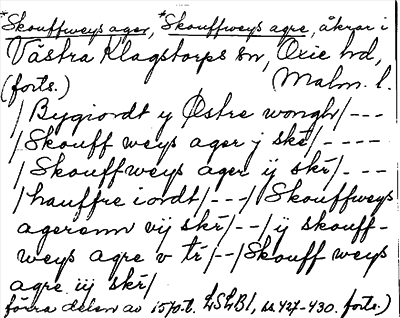 *Skouffweys ager, *Skouffweys agre, åkrar i
Västra Klagstorps sn, Oxie hd,
(forts.) Malm. l.
/Bygiordt y Østre wongh/---
/Skouff weys ager j skr/----
/Skouffweys ager ij skr/---
/hauffre iordt/---/Skouffweys
agerenn vij skr/--/ij skouff-
weys agre v tr/--/Skouff weys
agre iij skr/
förra delen av 1570-t. LSLB1, ss. 427-430. forts.)